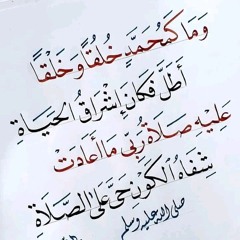 وَمَا كَمُحَمَّدٍ خُلُقًا وَخَلْقًا
أَطَلَّ فَكَانَ إِشْرَاقُ الحَيَاةِ
عَلَيْهِ صَلَاةُ رَبِّي مَا أَعَادَتْ
شِفَاهُ الكَوْنِ حَيَّ عَلَى الصَّلَاةِ
صلى الله عليه وسلم